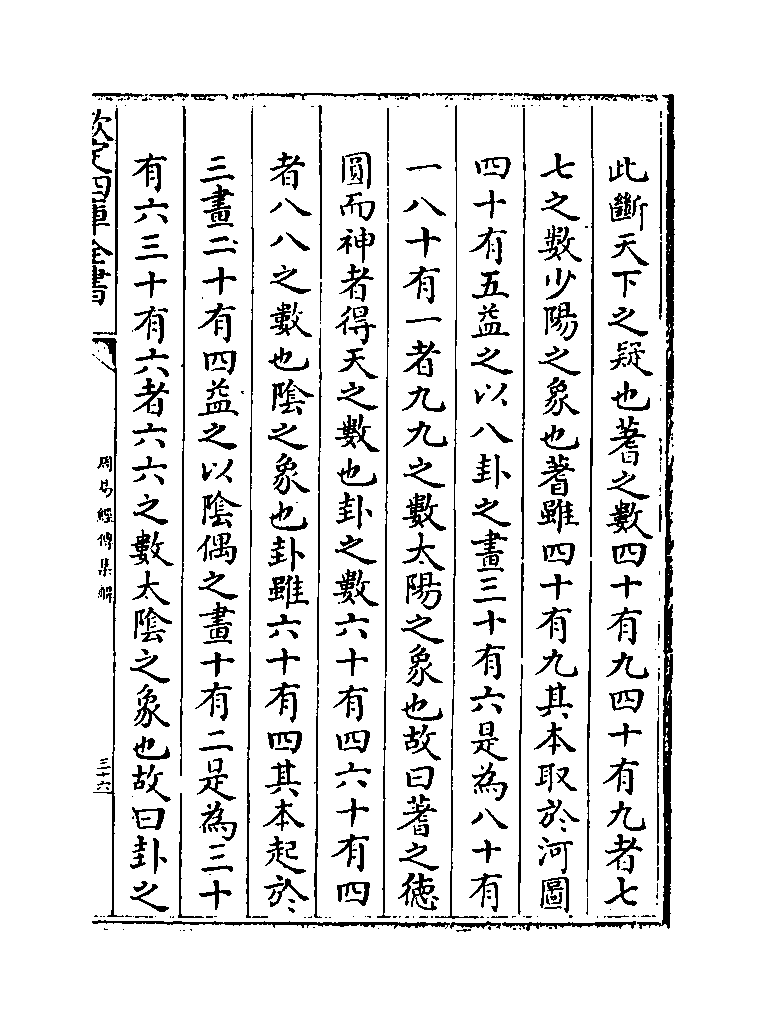 此斷天下之疑也蓍之數四十有九四十有九者七
七之數少陽之象也蓍雖四十有九其本取於河圖
四十有五益之以八卦之畫三十有六是為八十有
一八十有一者九九之數太陽之象也故曰蓍之德
圓而神者得天之數也卦之數六十有四六十有四
者八八之數也陰之象也卦雖六十有四其本起於
三畫二十有四益之以陰偶之畫十有二是為三十
有六三十有六者六六之數太陰之象也故曰卦之
欽定四庫全書
周易經傳集解
三十六